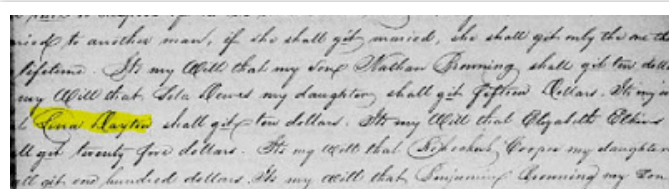 ried to another man, if she shall git maried, she shall git only the one th
lifetime. Its my Will that my son Nathan Browning shall git ten doll
my Will that Lola Dewes my daughter shall git fifteen Dollars. Its my w
Levica Dayton shall git ten dollars. Its my Will that Elizabeth Elkins
ll git twenty five dollars. Its my will that Cooper my daughter
all git one hundred dollars. Its my will that Benjamin Browning my son